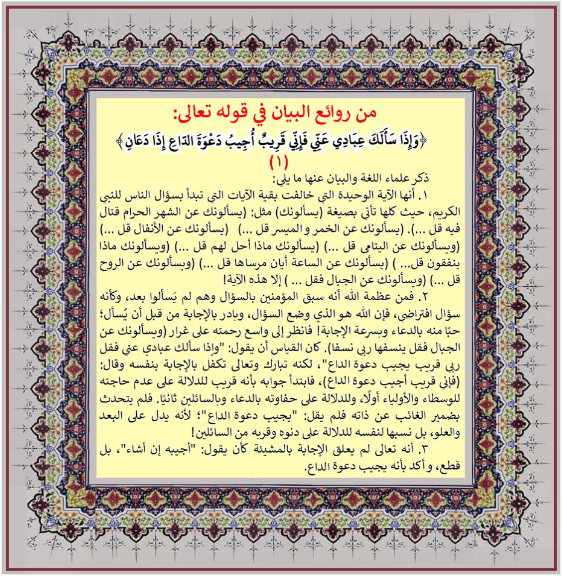 من روائع البيان في قوله تعالى:
﴿وَإِذَا سَأَلَكَ عِبَادِي عَنِّي فَإِنِّي قَرِيبٌ أُجِيبُ دَعْوَةَ الدَّاعِ إِذَا دَعَانِ﴾
(١)
ذكر علماء اللغة والبيان عنها ما يلي:
١. أنها الآية الوحيدة التي خالفت بقية الآيات التي تبدأ بسؤال الناس للنبي
الكريم، حيث كلها تأتي بصيغة (يسألونك) مثل: (يسألونك عن الشهر الحرام قتال
فيه قل ...). (يسألونك عن الخمر و الميسر قل ...) (يسألونك عن الأنفال قل ...)
(ويسألونك عن اليتامى قل ...) (يسألونك ماذا أحل لهم قل ...) (ويسألونك ماذا
ينفقون قل... ) (يسألونك عن الساعة أيان مرساها قل ...) (ويسألونك عن الروح
قل ...) (ويسألونك عن الجبال فقل ... ) إلا هذه الآية!
٢. فمن عظمة الله أنه سبق المؤمنين بالسؤال وهم لم يَسألوا بعد، وكأنه
سؤال افتراضي، فإن الله هو الذي وضع السؤال، وبادر بالإجابة من قبل أن يُسأل؛
حبًا منه بالدعاء وبسرعة الإجابة! فانظر إلى واسع رحمته على غرار (ويسألونك عن
الجبال فقل ينسفها ربي نسفا). كان القياس أن يقول: "وإذا سألك عبادي عني فقل
ربي قريب يجيب دعوة الداع"، لكنه تبارك وتعالى تكفل بالإجابة بنفسه وقال:
(فإني قريب أجيب دعوة الداع)، فابتدأ جوابه بأنه قريب للدلالة على عدم حاجته
للوسطاء والأولياء أولًا، وللدلالة على حفاوته بالدعاء وبالسائلين ثانيًا. فلم يتحدث
بضمير الغائب عن ذاته فلم يقل: "يجيب دعوة الداع"؛ لأنه يدل على البعد
والعلو، بل نسبها لنفسه للدلالة على دنوه وقربه من السائلين!
٣. أنه تعالى لم يعلق الإجابة بالمشيئة كأن يقول: "أجيبه إن أشاء"، بل
قطع، وأكد بأنه يجيب دعوة الداع.